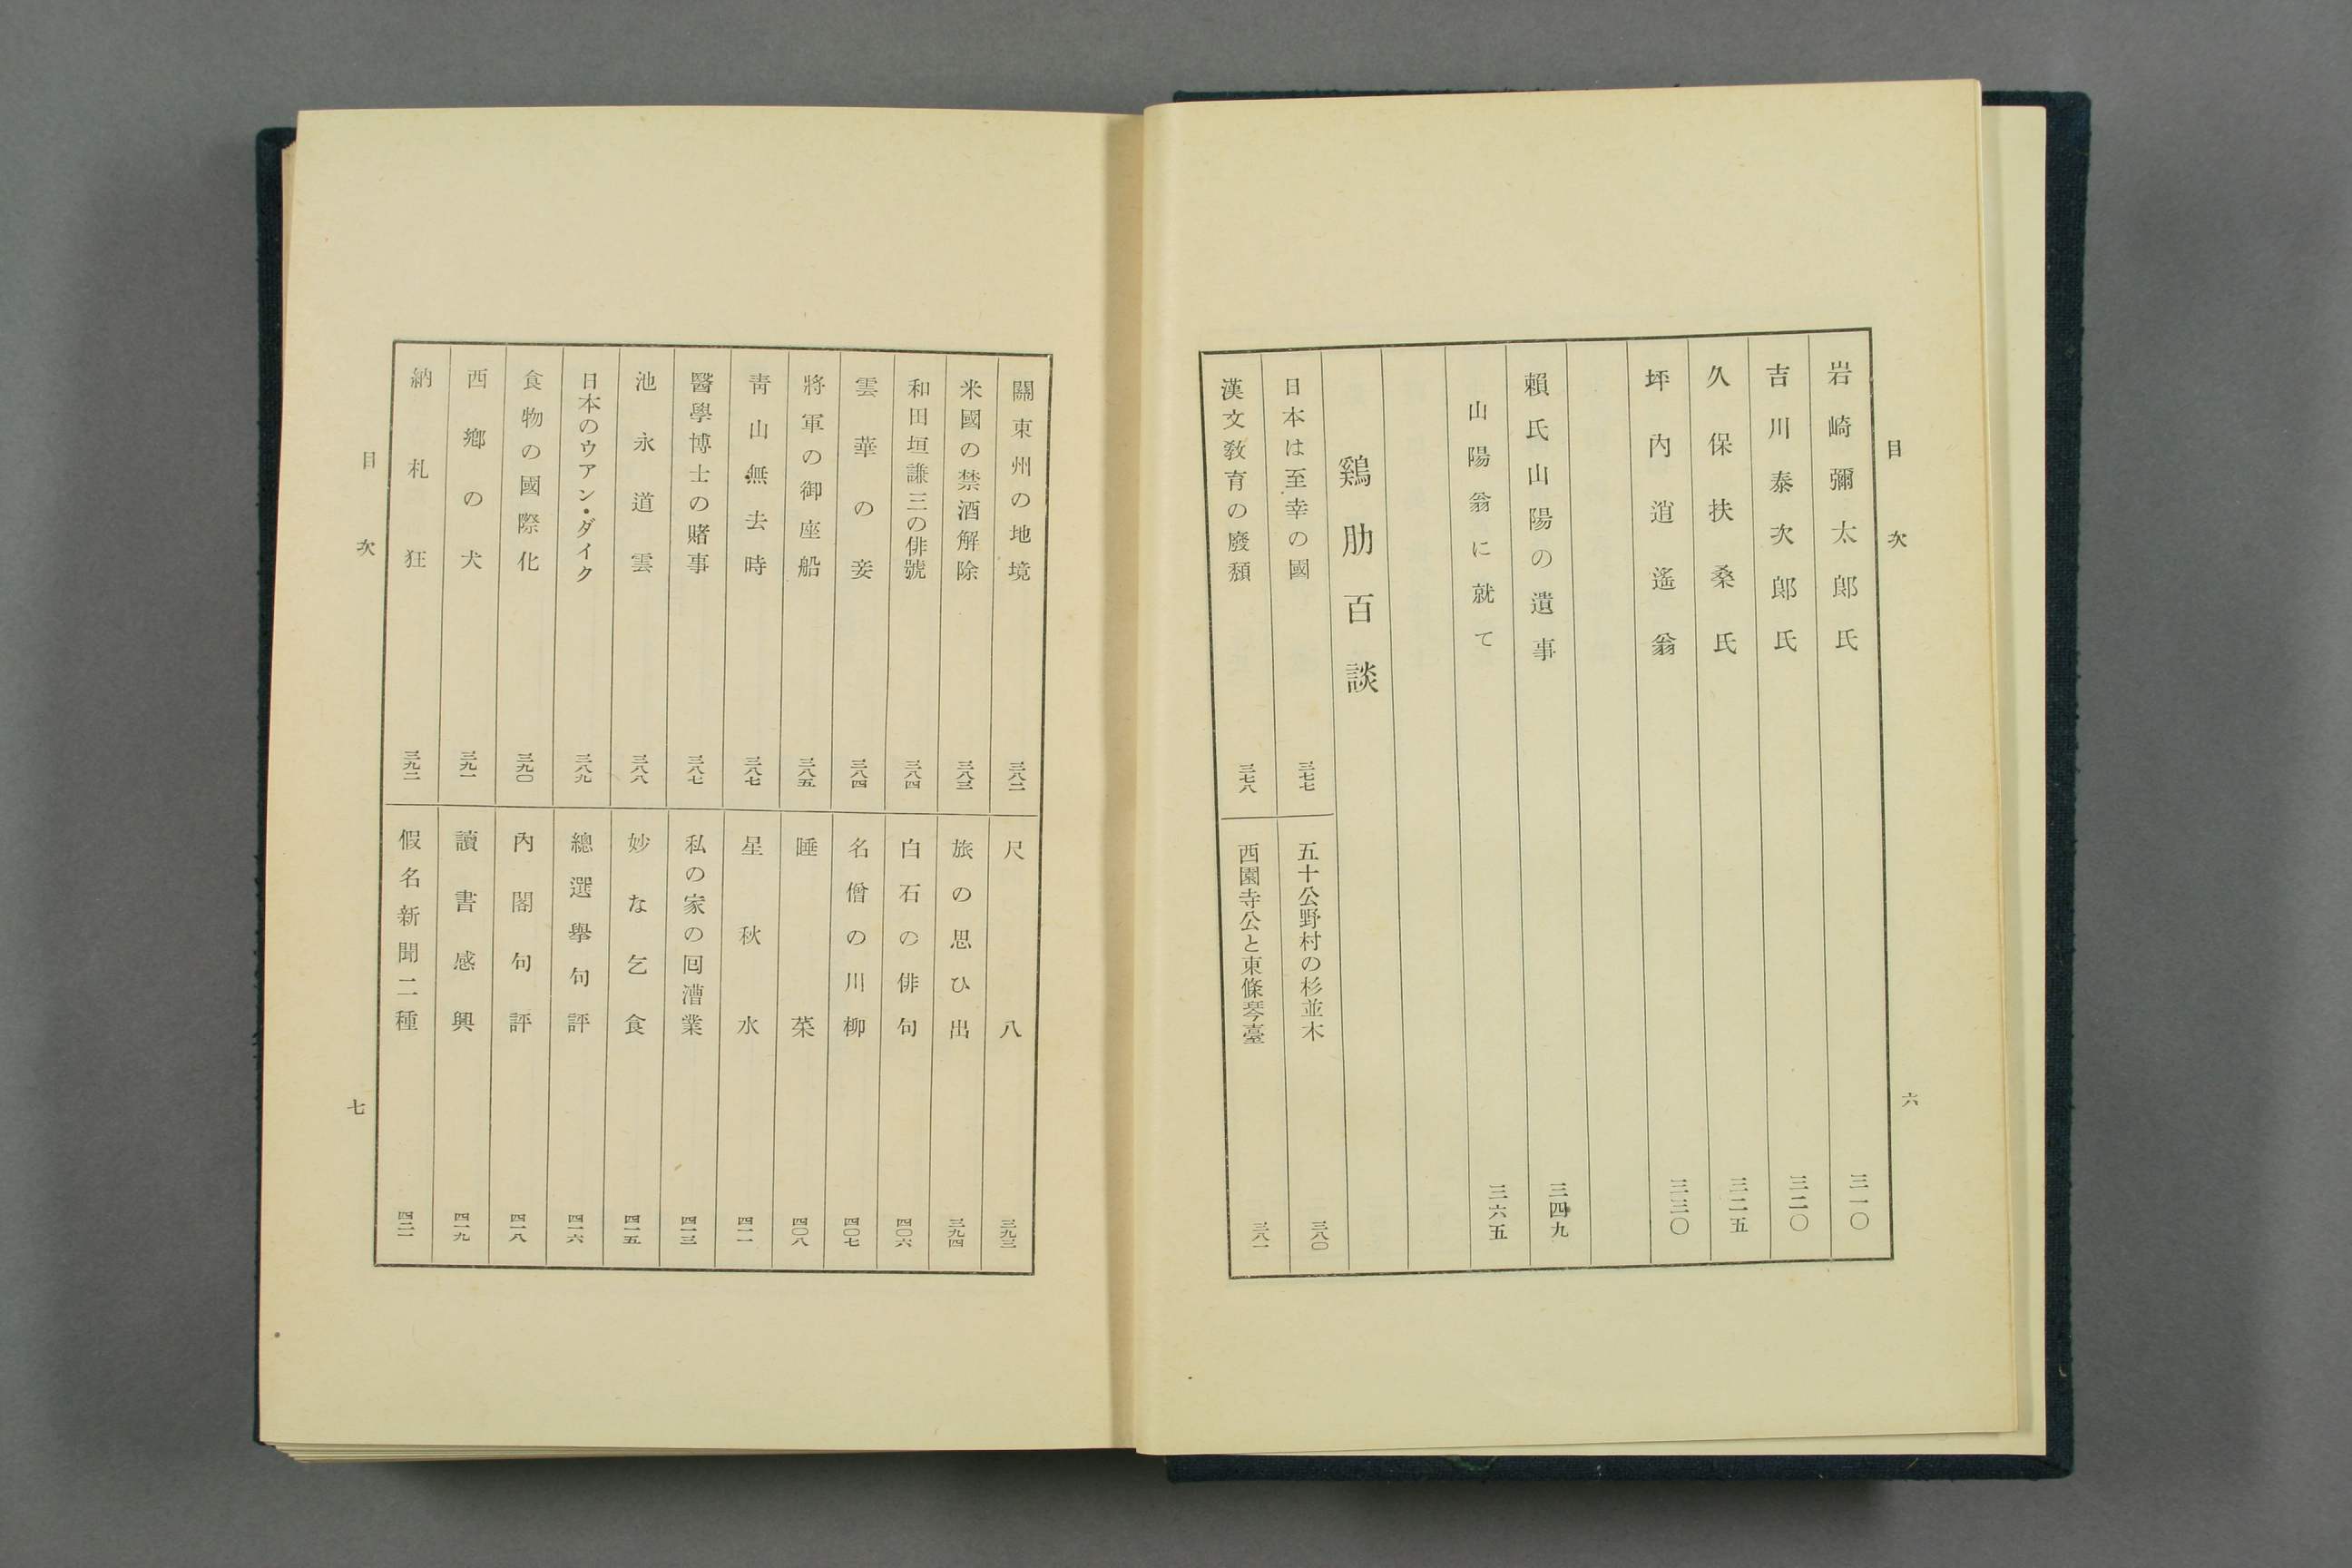 目次
六
岩崎彌太郎氏 三一〇
吉川泰次郎氏 三二〇
久保扶桑氏 三二五
坪内逍遙翁 三三〇
賴氏山陽の遺事 三四九
山陽翁に就て 三六五
鷄肋百談
日本は至幸の國 三七七
漢文敎育の廢頽 三七八
五十公野村の杉並木 三八〇
西園寺公と東條琴臺 三八一
關東州の地境 三八二
米國の禁酒解除 三八三
和田垣謙三の俳號 三八四
雲華の妾 三八四
將軍の御座船 三八五
靑山無去時 三八七
醫學博士の賭事 三八七
池永道雲 三八八
日本のウアン・ダイク 三八九
食物の國際化 三九〇
西鄕の犬 三九一
納札狂 三九二
尺八 三九三
旅の思ひ出 三九四
白石の俳句 四〇六
名僧の川柳 四〇七
睡菜 四〇八
星秋水 四一一
私の家の囘漕業 四一三
妙な乞食 四一五
總選擧句評 四一六
內閣句評 四一八
讀書感興 四一九
假名新聞二種 四二一
目次
七